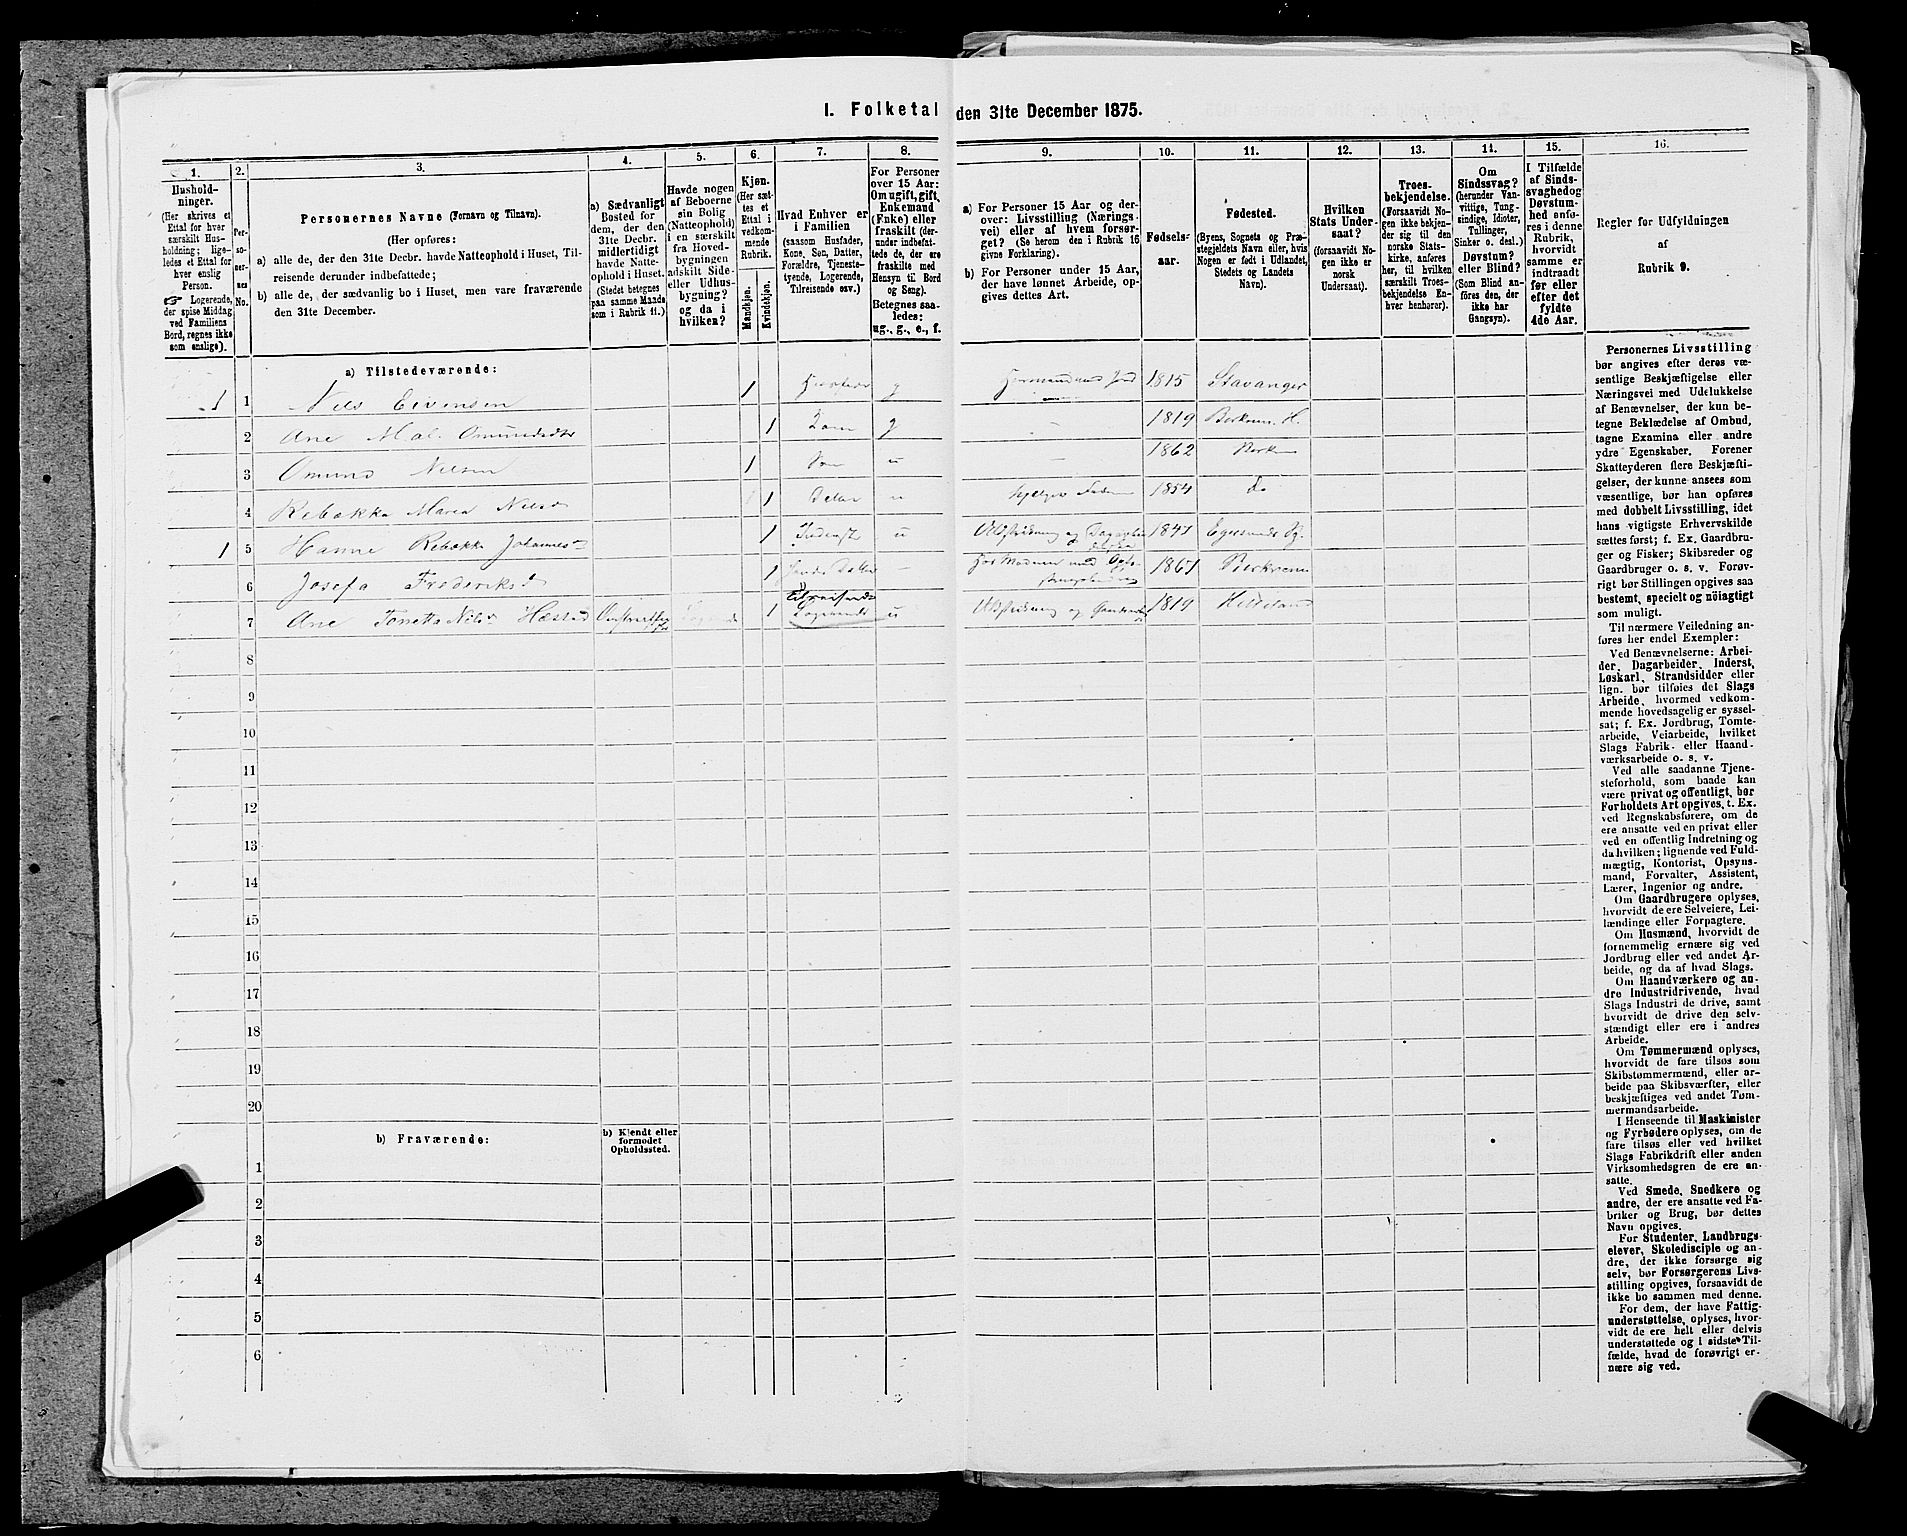 I. Folketal den 31te December 1875.
1. 2. 3. 4. 5. 6. 7. 8. 9. 10. 11. 12. 13. 14. 15. 16.
Hushold-
ninger.
(Her skrives et
Ettal for hver
særskilt Hus-
holdning; lige-
ledes et Ettal for
hver enslig
Person.
☞ Logerende,
der spise Middag
ved Familiens
Bord, regnes ikke
som enslige).
Per-
so-
ner-
nes
No.
Personernes Navne (Fornavn og Tilnavn).
(Her opføres:
a) alle de, der den 31te Decbr. havde Natteophold i Huset, Til-
reisende derunder indbefattede;
b) alle de, der sædvanlig bo i Huset, men vare fraværende
den 31te December.
a) Sædvanligt
Bosted for
dem, der den
31te Decbr.
midlertidigt
havde Natte-
ophold i Huset.
(Stedet betegnes
paa samme Maade
som i Rubrik 11.)
Havde nogen
af Beboerne
sin Bolig
(Natteophold)
i en særskilt
fra Hoved-
bygningen
adskilt Side-
eller Udhus-
bygning?
og da i
hvilken?
Kjøn.
(Her sæt-
tes et
Ettal i
vedkom-
mende
Rubrik.)
Mandkjøn.
Kvindekjøn.
Hvad Enhver er
i Familien
(saasom Husfader,
Kone, Søn, Datter,
Forældre, Tjeneste-
tyende, Logerende,
Tilreisende osv.)
For Personer
over 15 Aar:
Om ugift, gift,
Enkemand
(Enke) eller
fraskilt (der-
under indbefat-
tede de, der ere
fraskilte med
Hensyn til Bord
og Seng).
Betegnes saa-
ledes:
ug., g., e., f.
a) For Personer 15 Aar og der-
over: Livsstilling (Nærings-
vei) eller af hvem forsør-
get? (Se herom den i Rubrik 16
givne Forklaring).
b) For Personer under 15 Aar,
der have lønnet Arbeide, op-
gives dettes Art.
Fødsels-
aar.
Fødested.
(Byens, Sognets og Præ-
stegjeldets Navn eller, hvis
Nogen er født i Udlandet,
Stedets og Landets
Navn).
Hvilken
Stats Under-
saat?
(forsaavidt No-
gen ikke er
norsk
Undersaat).
Troes-
bekjendelse.
(Forsaavidt No-
gen ikke bekjen-
der sig til den
norske Stats-
kirke, anføres
her, til hvilken
særskilt Troes-
bekjendelse En-
hver henhører).
Om
Sindssvag?
(herunder Van-
vittige, Tung-
sindige, Idioter,
Tullinger,
Sinker o. desl.)
Døvstum?
eller Blind?
(Som Blind an-
føres den, der
ikke har
Gangsyn).
I Tilfælde
af Sinds-
svaghed og
Døvstum-
hed anfø-
res i denne
Rubrik,
hvorvidt
samme er
indtraadt
før eller
efter det
fyldte
4de Aar.
Regler for Udfyldningen
af
Rubrik 9.
a) Tilstedeværende:
1 1 Nils Eivensen 1 g 1815 Stavanger
2 Ane Mal. Omundsdtr 1 Kone g – 1819 Berkrem H.
3 Omund Nilsen 1 Søn u – 1862
4 Rebekka Maria Nilsd 1 Datter u 1854 do
1 5 Hanne Rebekka Johannesd 1 Inderst u 1847 Egersunds
6 Josefa Frederiksd 1 Datter – 1867 Berkrem
7 Ane Tonetta Nilsd Hæstad 1 tilreisende Logerende u 1819 Helleland
8
9
10
11
12
13
14
15
16
17
18
19
20
b) Fraværende:
b) Kjendt eller
formodet
Opholdssted.
1
2
3
4
5
6
Personernes Livsstilling
bør angives efter deres væ-
sentlige Beskjæftigelse eller
Næringsvei med Udelukkelse
af Benævnelser, der kun be-
tegne Beklædelse af Ombud,
tagne Examina eller andre
ydre Egenskaber. Forener
Skatteyderen flere Beskjæfti-
gelser, der kunne ansees som
væsentlige, bør han opføres
med dobbelt Livsstilling, idet
hans vigtigste Erhvervskilde
sættes først; f. Ex. Gaardbru-
ger og Fisker; Skibsreder og
Gaardbruger o. s. v. Forøv-
rigt bør Stillingen opgives saa
bestemt, specielt og nöiagtigt
som muligt.
Til nærmere Veiledning an-
føres her endel Exempler:
Ved Benævnelserne: Arbei-
der, Dagarbeider, Inderst,
Løskarl, Strandsidder eller
lign. bør tilføies det Slags
Arbeide, hvormed vedkom-
mende hovedsagelig er syssel-
sat; f. Ex. Jordbrug, Tomte-
arbeide, Veiarbeide, hvilket
Slags Fabrik- eller Haand-
værksarbeide o. s. v.
Ved alle saadanne Tjene-
steforhold, som baade kan
være privat og offentligt, bør
Forholdets Art opgives, t. Ex.
ved Regnskabsførere, om de
ere ansatte ved en privat eller
ved en offentlig Indretning og
da hvilken; lignende ved Fuld-
mægtig, Kontorist, Opsyns-
mand, Forvalter, Assistent,
Lærer, Ingeniør og andre.
Om Gaardbrugere oplyses,
hvorvidt de ere Selveiere, Lei-
lændinge eller Forpagtere.
Om Husmænd, hvorvidt de
fornemmelig ernære sig ved
Jordbrug eller ved andet Ar-
beide, og da af hvad Slags.
Om Haandværkere og an-
dre Industridrivende, hvad
Slags Industri de drive, samt
hvorvidt de drive den selv-
stændigt eller ere i andres
Arbeide.
Om Tømmermænd oplyses,
hvorvidt de fare tilsøs som
Skibstømmermænd, eller ar-
beide paa Skibsværfter, eller
beskjæftiges ved andet Tøm-
mermandsarbeide.
I Henseende til Maskinister
og Fyrbødere oplyses, om de
fare tilsøs eller ved hvilket
Slags Fabrikdrift eller anden
Virksomhedsgren de ere an-
satte.
Ved Smede, Snedkere og
andre, der ere ansatte ved Fa-
briker og Brug, bør dettes
Navn opgives.
For Studenter, Landbrugs-
elever, Skoledisciple og an-
dre, der ikke forsørge sig
selv, bør Forsørgerens Livs-
stilling opgives, forsaavidt de
ikke bo sammen med denne.
For dem, der have Fattig-
understøttelse, oplyses, hvor-
vidt de ere helt eller delvis
understøttede og i sidste Til-
fælde, hvad de forøvrigt er-
nære sig ved.